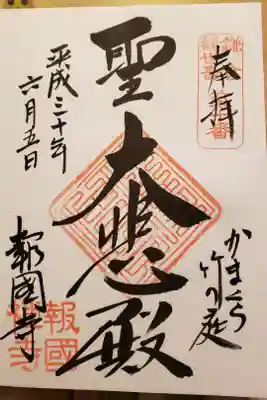 奉拝
かまくら
竹の庭
聖大悲殿
平成三十年
六月五日
報國寺
報國